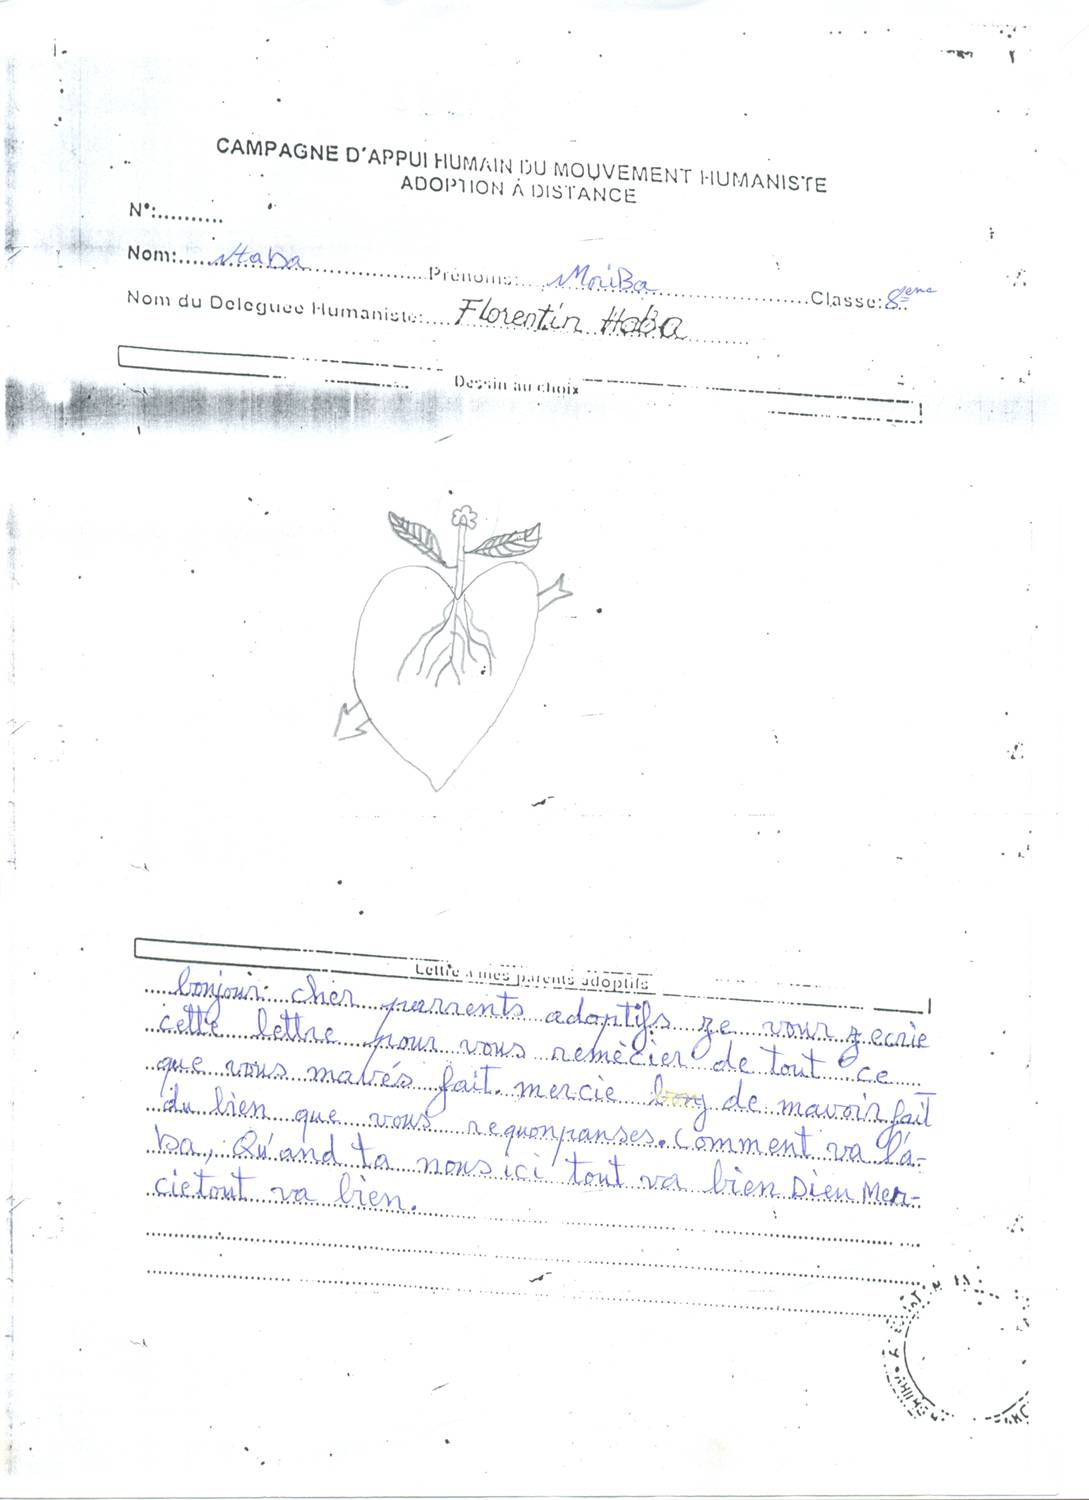 CAMPAGNE D'APPUI HUMAIN DU MOUVEMENT HUMANISTE
ADOPTION À DISTANCE
N°:..........
Nom: Haba Prénoms: MoriBa Classe: 8ème
Nom du Deleguee Humaniste: Florentin Haba
Dessin au choix
Lettre a mes parents adoptifs
bonjour cher parrents adoptifs ze vour z ecrie
cette lettre pour vous remècier de tout ce
que vous mavés fait. mercie de mavoir fait
du bien que vous requonpanses. Comment va lá-
ba, Qu'and ta nous ici tout va bien Dieu Mer-
cietout va bien.